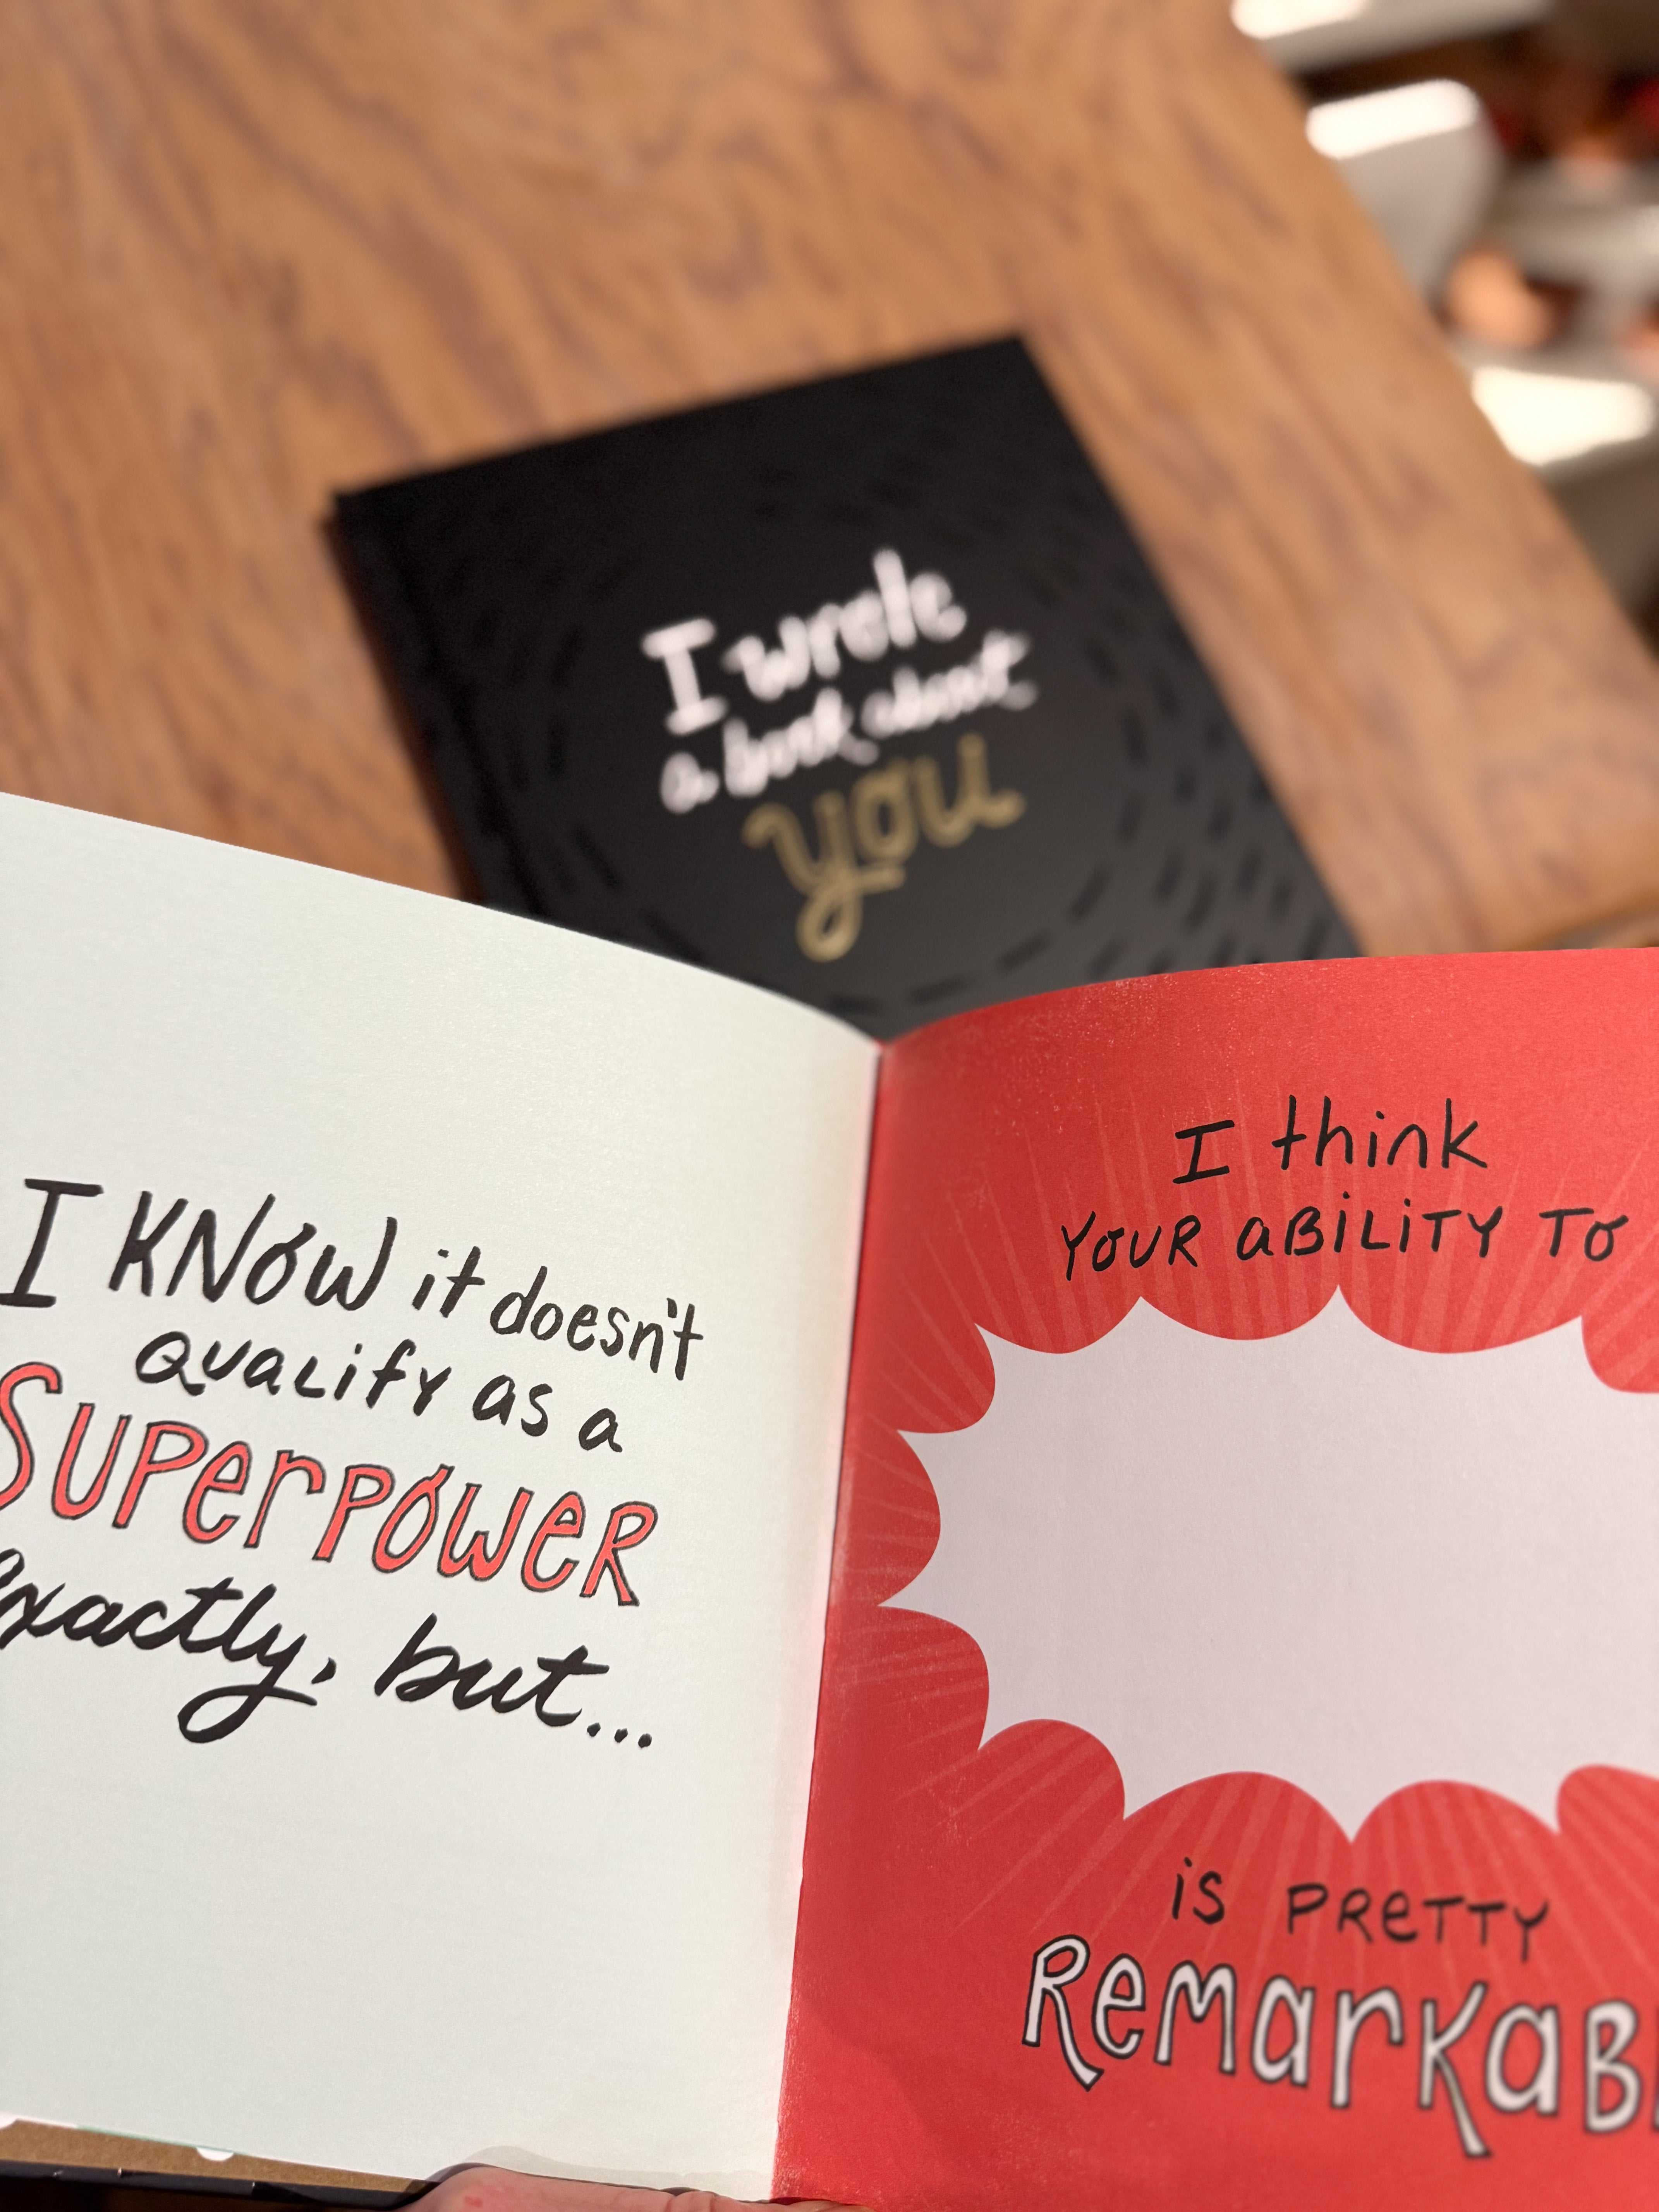 I wrote
a book about
you
I KNOW it doesn't
QUALIFY as a
SUPERPOWER
exactly, but...
I think
YOUR aBILITY TO
is PRETTY
REMARKABL